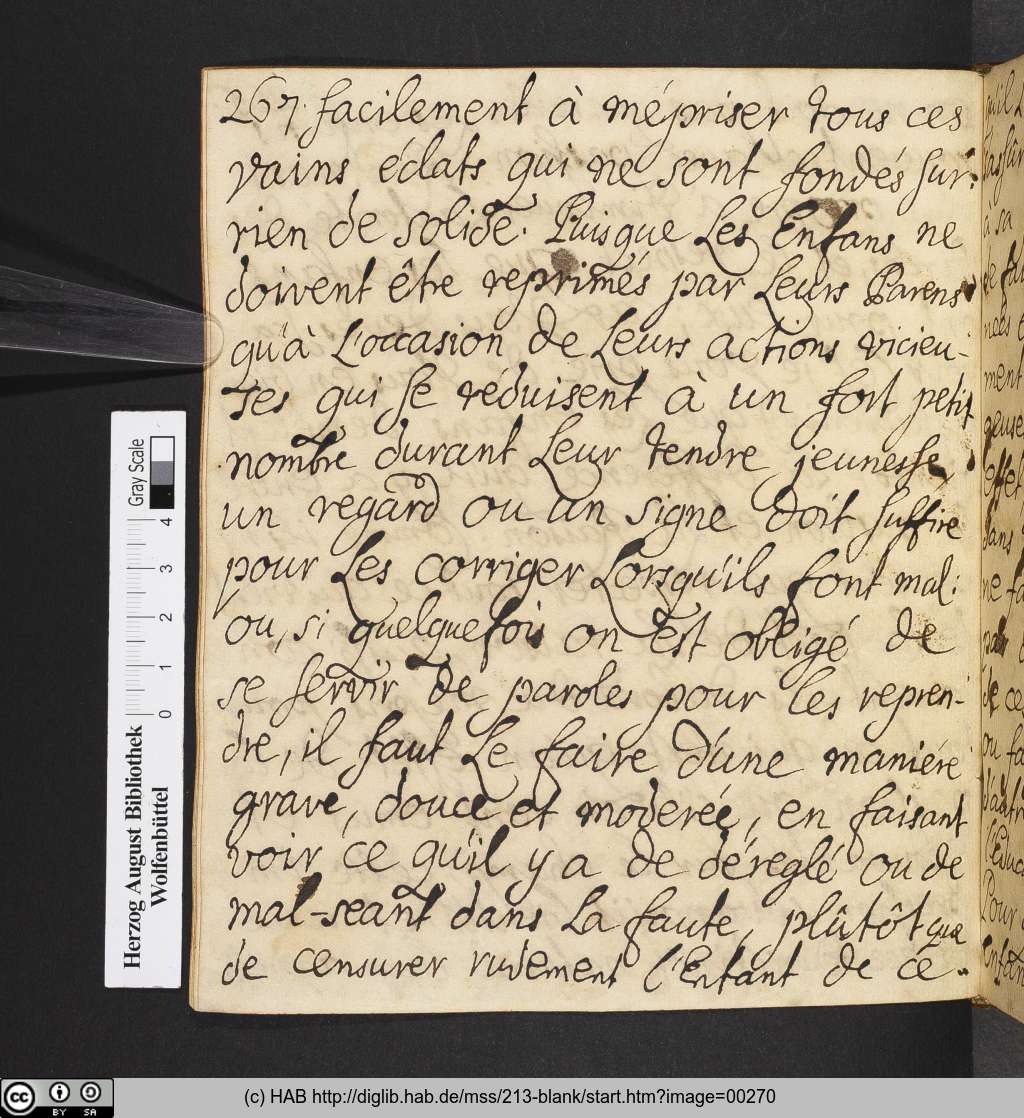 267. facilement à mépriser tous ces
vains éclats qui ne sont fondés sur
rien de solide. Puisque Les Enfans ne
doivent être reprimés par Leurs Parens
qu'à L'occasion de Leurs actions vicieu-
ses qui se réduisent à un fort petit
nombre durant Leur tendre jeunesse,
un regard ou un signe doit suffire
pour Les corriger Lorsqu'ils font mal:
ou, si quelquefois on est obligé de
se servir de paroles pour les repren-
dre, il faut Le faire d'une maniére
grave, douce et moderée, en faisant
voir ce qu'il y a de déreglé ou de
mal-seant dans La faute, plûtôt que
de censurer rudement l'Enfant de ce
Herzog August Bibliothek
Wolfenbüttel
Gray Scale
0 1 2 3 4
cc BY SA
(c) HAB http://diglib.hab.de/mss/213-blank/start.htm?image=00270